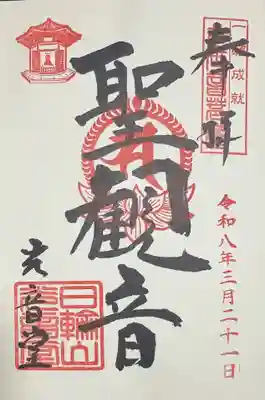 奉拝
一願成就
聖観音
令和八年三月二十一日
光音堂
日輪山